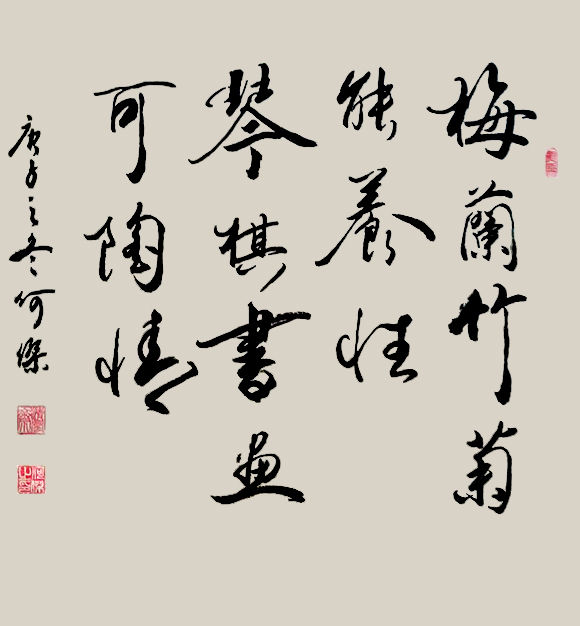 梅蘭竹菊
能養性
琴棋書画
可陶情
庚子之冬何傑